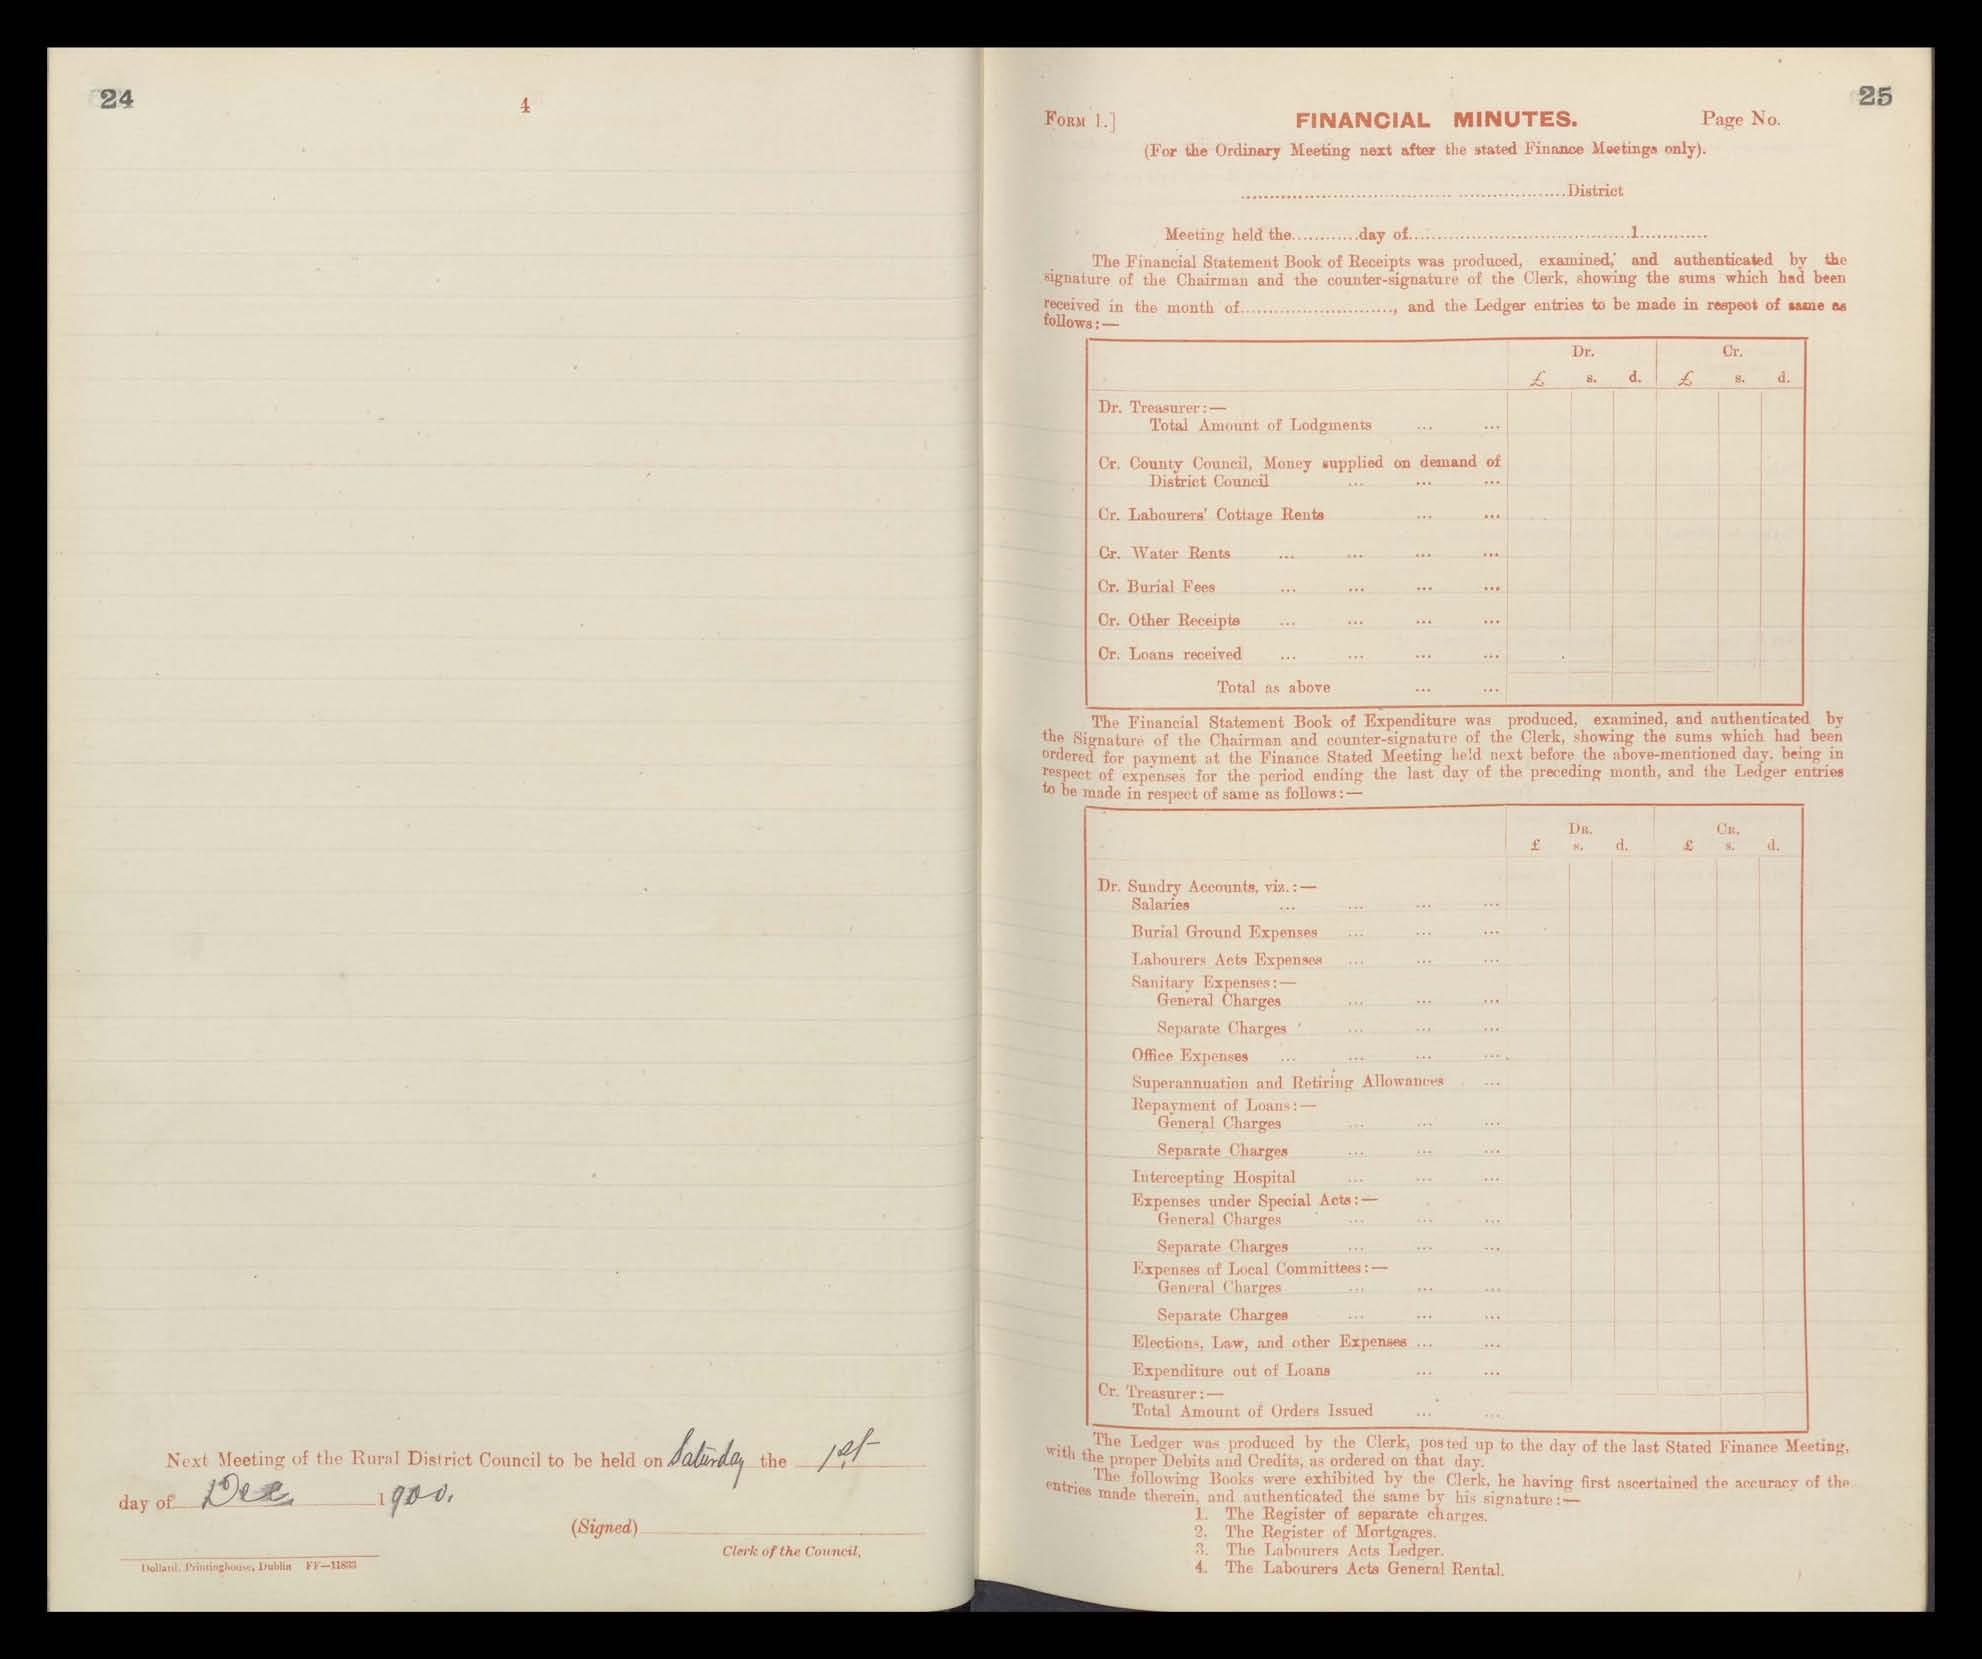 24
4
Next Meeting of the Rural District Council to be held on Saturday the 1st
day of Dec. 1900.
(Signed)
Clerk of the Council,
Dollard, Printinghouse, Dublin FF—11833
25
FORM 1.] FINANCIAL MINUTES. Page No.
(For the Ordinary Meeting next after the stated Finance Meetings only).
District
Meeting held the............day of........................................1............
The Financial Statement Book of Receipts was produced, examined, and authenticated by the
signature of the Chairman and the counter-signature of the Clerk, showing the sums which had been
received in the month of............................, and the Ledger entries to be made in respect of same as
follows:—
Dr. Cr.
£ s. d. £ s. d.
Dr. Treasurer:—
Total Amount of Lodgments ... ...
Cr. County Council, Money supplied on demand of
District Council ... ... ...
Cr. Labourers' Cottage Rents ... ...
Cr. Water Rents ... ... ... ...
Cr. Burial Fees ... ... ... ...
Cr. Other Receipts ... ... ... ...
Cr. Loans received ... ... ... ...
Total as above ... ...
The Financial Statement Book of Expenditure was produced, examined, and authenticated by
the Signature of the Chairman and counter-signature of the Clerk, showing the sums which had been
ordered for payment at the Finance Stated Meeting held next before the above-mentioned day, being in
respect of expenses for the period ending the last day of the preceding month, and the Ledger entries
to be made in respect of same as follows:—
DR. CR.
£ s. d. £ s. d.
Dr. Sundry Accounts, viz.:—
Salaries ... ... ... ...
Burial Ground Expenses ... ... ...
Labourers Acts Expenses ... ... ...
Sanitary Expenses:—
General Charges ... ... ...
Separate Charges ... ... ...
Office Expenses ... ... ... ...
Superannuation and Retiring Allowances ...
Repayment of Loans:—
General Charges ... ... ...
Separate Charges ... ... ...
Intercepting Hospital ... ... ...
Expenses under Special Acts:—
General Charges ... ... ...
Separate Charges ... ... ...
Expenses of Local Committees:—
General Charges ... ... ...
Separate Charges ... ... ...
Elections, Law, and other Expenses ... ...
Expenditure out of Loans ... ...
Cr. Treasurer:—
Total Amount of Orders Issued ... ...
The Ledger was produced by the Clerk, posted up to the day of the last Stated Finance Meeting,
with the proper Debits and Credits, as ordered on that day.
The following Books were exhibited by the Clerk, he having first ascertained the accuracy of the
entries made therein, and authenticated the same by his signature:—
1. The Register of separate charges.
2. The Register of Mortgages.
3. The Labourers Acts Ledger.
4. The Labourers Acts General Rental.